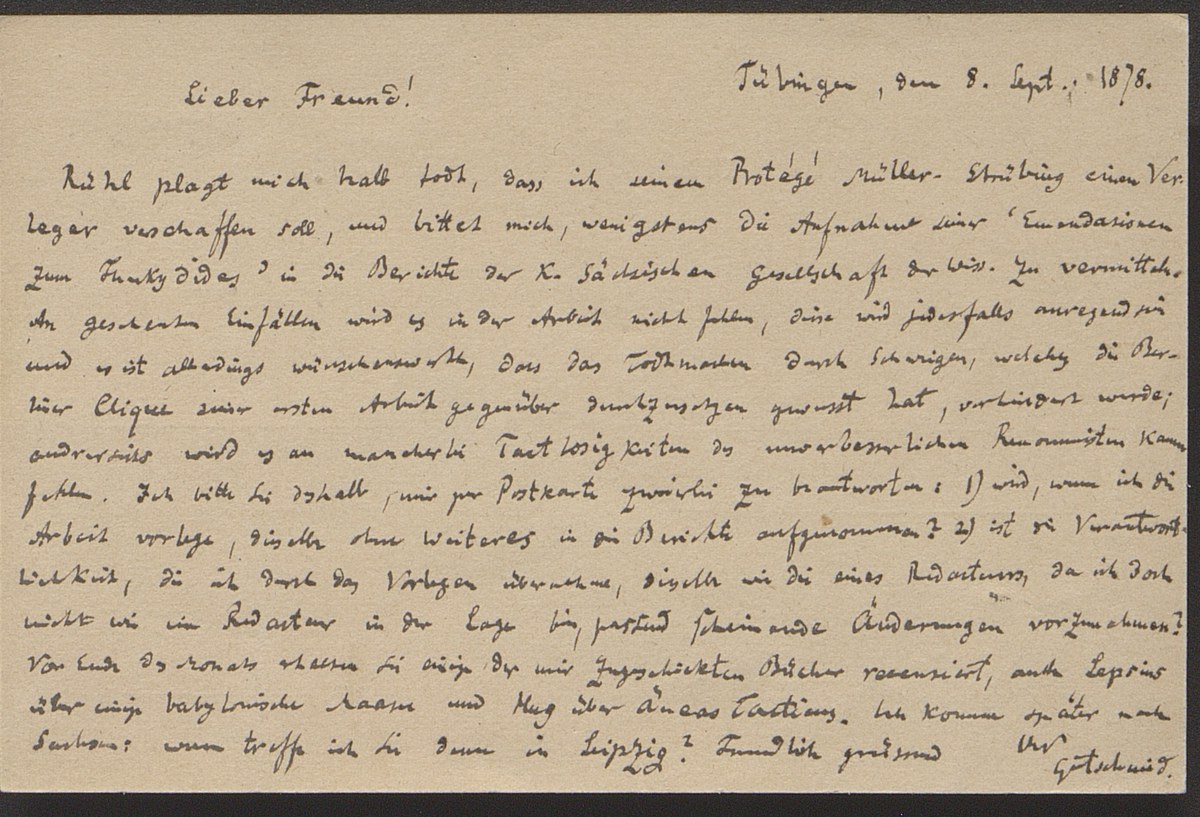 Tübingen, den 8. Sept., 1878.
Lieber Freund!
Rühl plagt mich halb todt, dass ich seinem Protégé Müller-Strübing einen Ver-
leger verschaffen soll, und bittet mich, wenigstens die Aufnahme seiner 'Emendationen
zum Thukydides' in die Berichte der K. Sächsischen Gesellschaft der Wiss. zu vermitteln.
An gescheuten Einfällen wird es in der Arbeit nicht fehlen, diese wird jedesfalls anregend sein
und es ist allerdings wünschenswerth, dass das Todtmachen durch Schweigen, welches die Ber-
liner Clique seiner ersten Arbeit gegenüber durchzusetzen gewusst hat, verhindert werde;
andrerseits wird es an mancherlei Tactlosigkeiten des unverbesserlichen Renommisten kaum
fehlen. Ich bitte Sie deshalb, mir per Postkarte zweierlei zu beantworten: 1) wird, wenn ich die
Arbeit vorlege, dieselbe ohne Weiteres in die Berichte aufgenommen? 2) ist die Verantwort-
lichkeit, die ich durch das Vorlegen übernehme, dieselbe wie die eines Redacteurs, da ich doch
nicht wie ein Redacteur in der Lage bin, passend scheinende Änderungen vorzunehmen?
Vor Ende des Monats erhalten Sie einige der mir zugeschickten Bücher recensiert, auch Lepsius
über einige babylonische Maasse und Hug über Äneas Tacticus. Ich komme später nach
Sachsen: wann treffe ich Sie denn in Leipzig? Freundlich grüssend Ihr
Gutschmid.